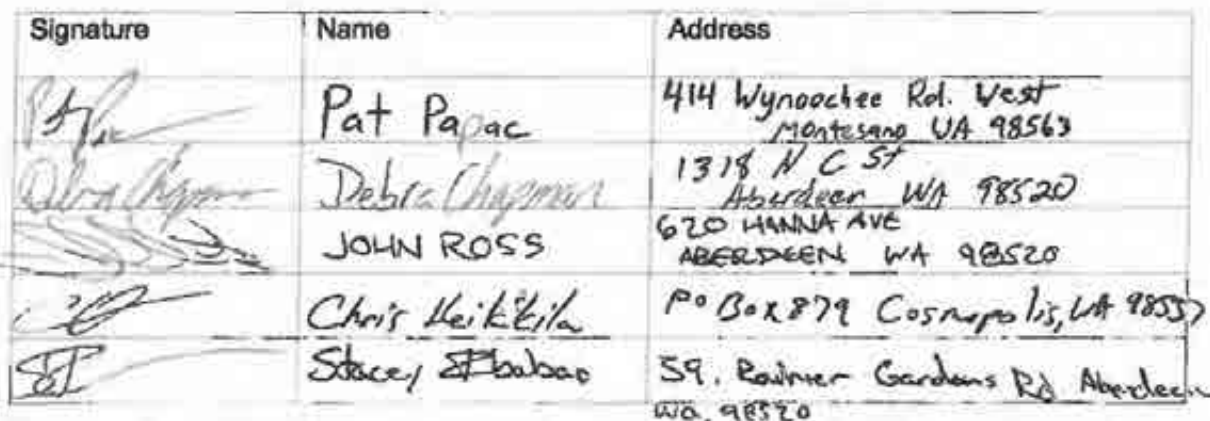 Signature Name Address
Pat Papac 414 Wynoochee Rd. West
Montesano WA 98563
Debra Chapman Debra Chapman 1318 N C St
Aberdeen WA 98520
JOHN ROSS 620 HANNA AVE
ABERDEEN WA 98520
Chris Heikkila PO Box 879 Cosmopolis, WA 98537
Stacey 59, Rainier Gardens Rd Aberdeen
WA. 98520